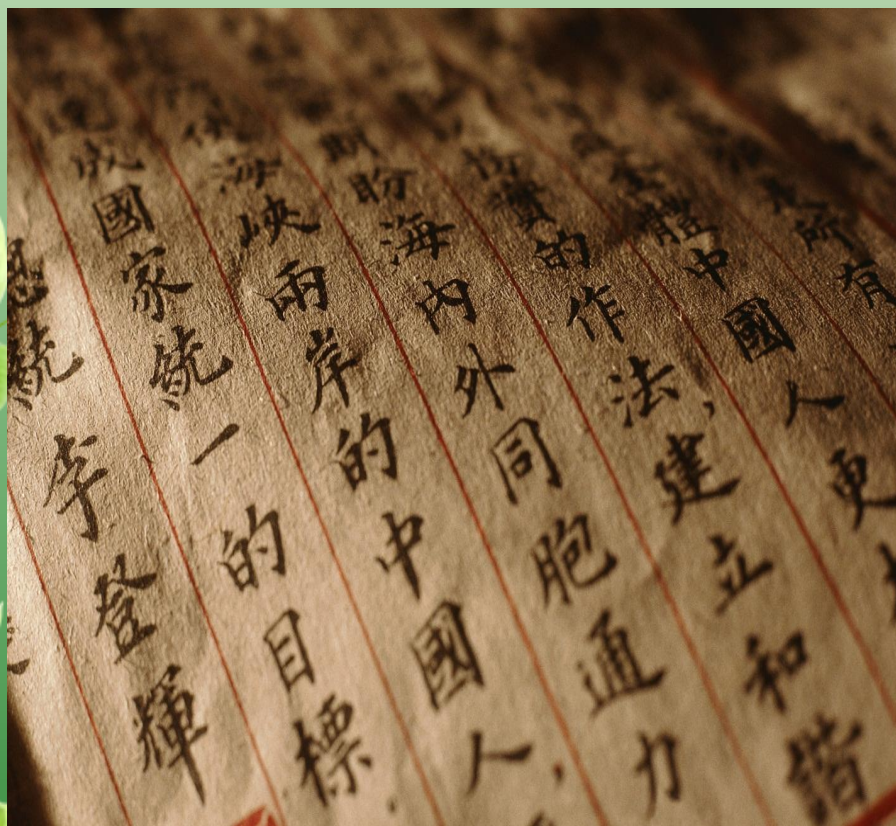 所有
全體中國人更
務實的作法,建立和諧
期盼海內外同胞通力
海峽兩岸的中國人,
成國家統一的目標
總統 李登輝